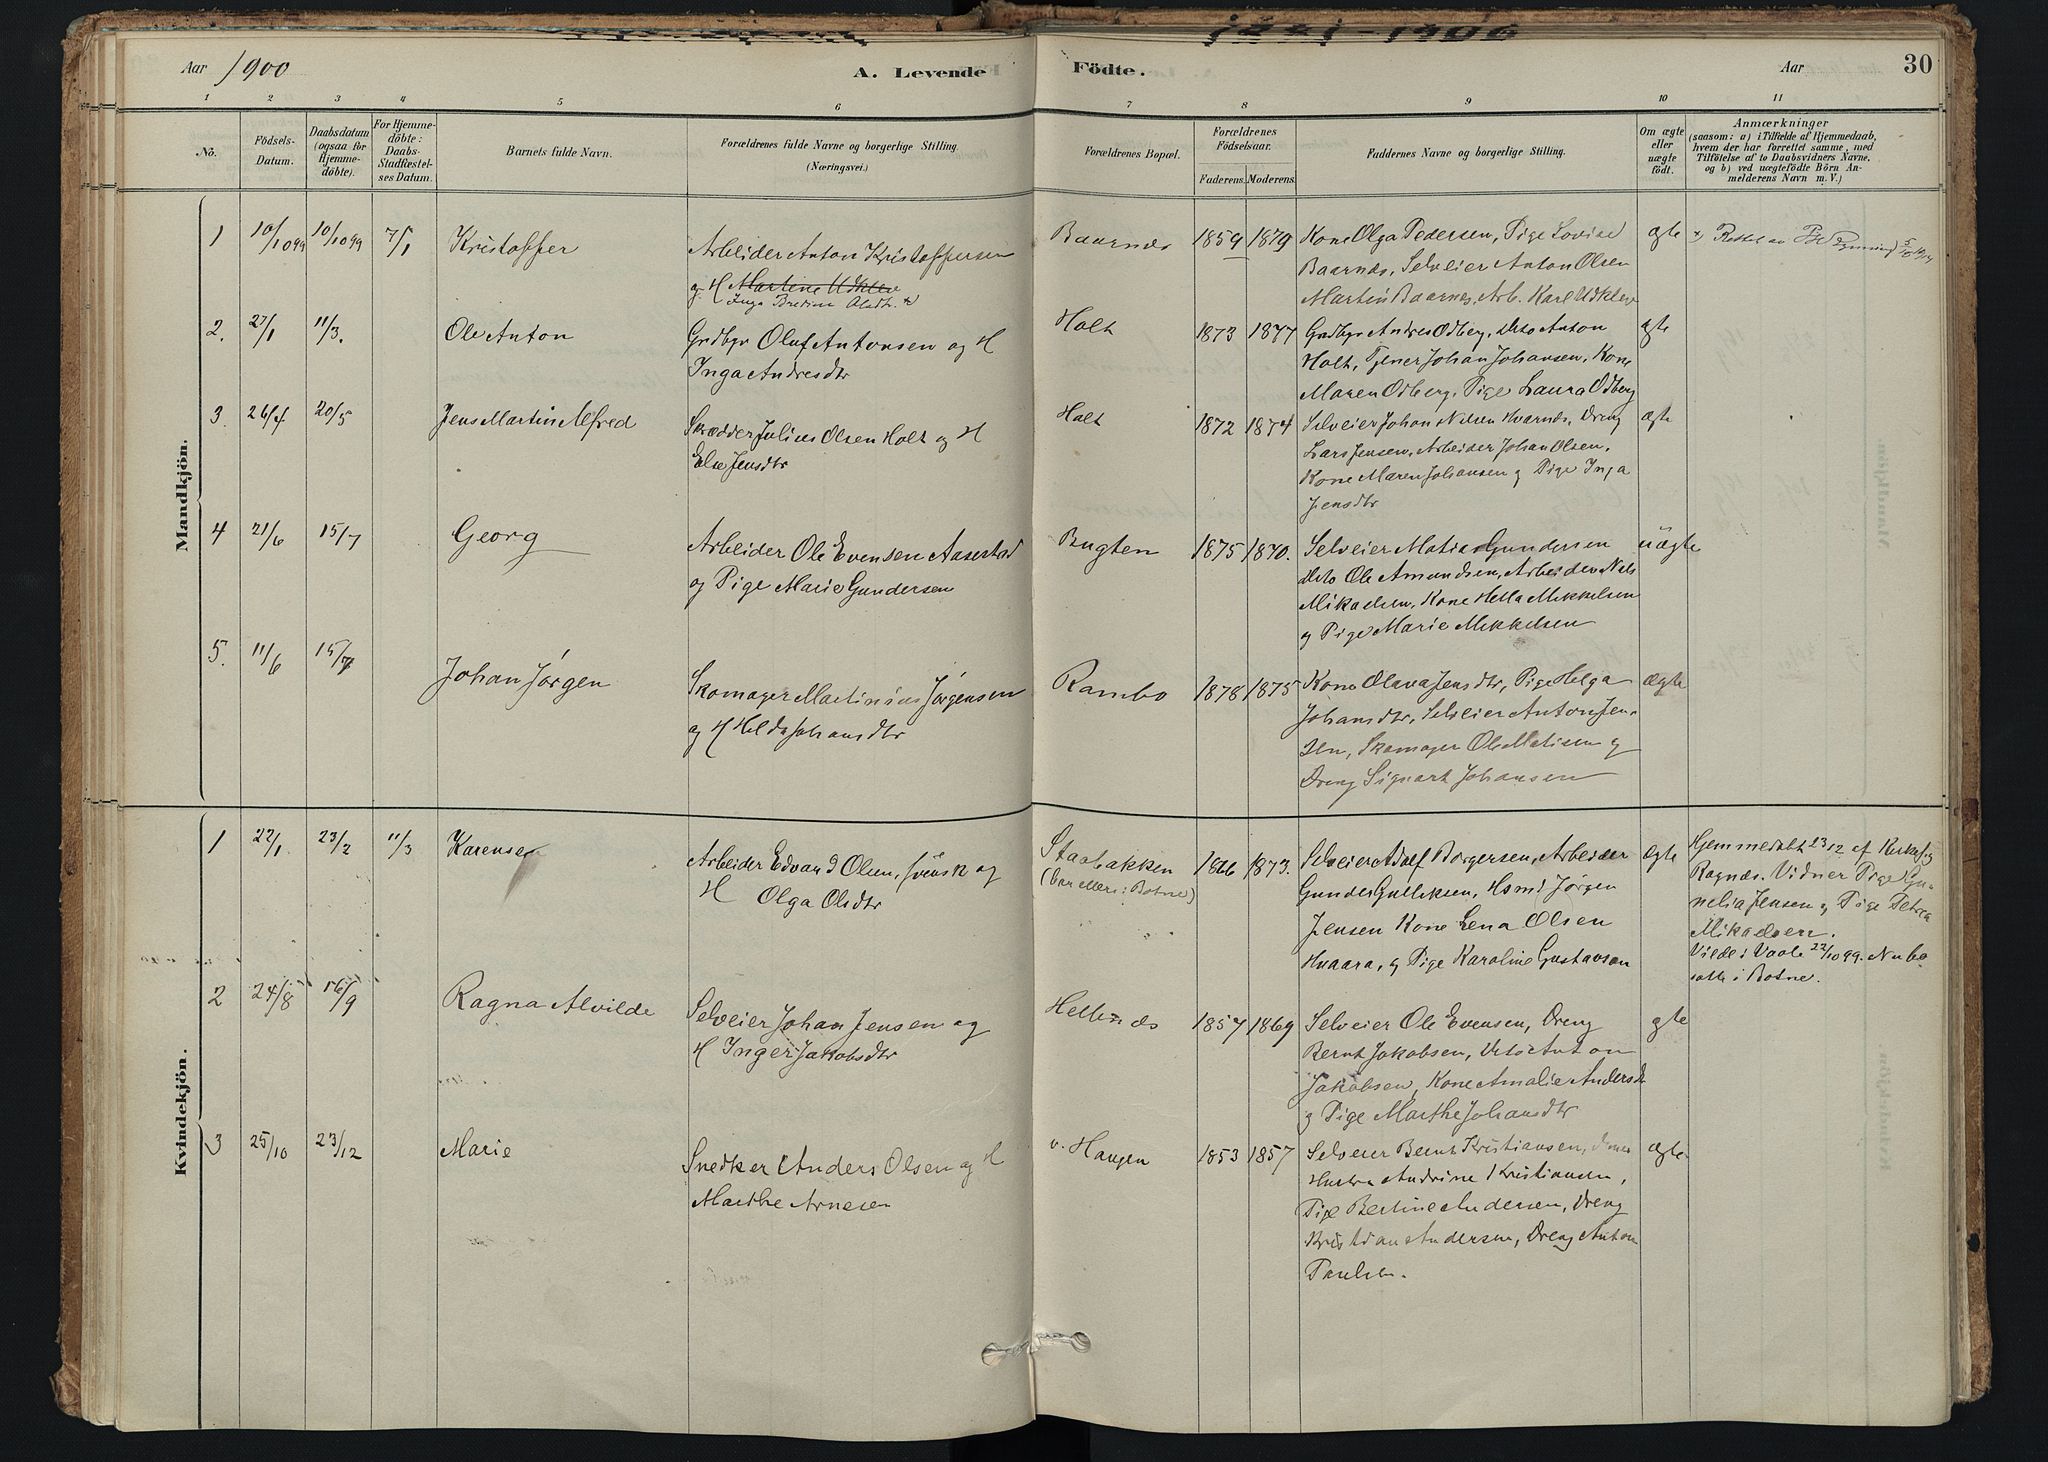 Aar 1900
A. Levende
Födte.
Aar
30
1 2 3 4 5 6 7 8 9 10 11
No.
Födsels-
Datum.
Daabsdatum
(ogsaa for
Hjemme-
döbte).
For Hjemme-
döbte:
Daabs-
Stadfæstel-
ses Datum.
Barnets fulde Navn.
Forældrenes fulde Navne og borgerlige Stilling.
(Næringsvei.)
Forældrenes Bopæl.
Forældrenes
Födselsaar.
Faderens. Moderens.
Faddernes Navne og borgerlige Stilling.
Om ægte
eller
uægte
födt.
Anmærkninger
(saasom: a) i Tilfælde af Hjemmedaab,
hvem der har forrettet samme, med
Tilföielse af to Daabsvidners Navne,
og b) ved uægtefödte Börn An-
melderens Navn m. V.)
Mandkjön.
1 10/10 99 10/10 99 7/1 Kristoffer
Arbeider Anton Kristoffersen
og H Martine Udklev
Inga Bredine Olsdtr. x)
Baarnæs 1859 1879
Kone Olga Pedersen, Pige Lovise
Baarnæs, Selveier Anton Olsen
Martin Baarnæs, Arb. Karl Udklev
ægte
x) Rettet av
2. 27/1 11/3. Ole Anton
Grdbgr Oluf Antonsen og H
Inga Andresdtr
Holt 1873 1877
Grdbgr Andres Odberg, dito Anton
Holt, Tjener Johan Johansen, Kone
Maren Odberg, Pige Laura Odberg
ægte
3. 26/4 20/5 Jens Martin Alfred
Skrædder Julius Olsen Holt og H
Else Jensdtr
Holt 1872 1874
Selveier Johan Nilsen Kvarnæs, Dreng
Lars Jensen, Arbeider Johan Olsen,
Kone Maren Johansen og Pige Inga
Jensdtr
ægte
4 21/6 15/7 Georg
Arbeider Ole Evensen Aasestad
og Pige Marie Gundersen
Bugten 1875 1870.
Selveier Matias Gundersen
dito Ole Amundsen, Arbeider Nils
Mikaelsen, Kone Hella Mikkelsen
og Pige Marie Mikkelsen
uægte
5. 11/6 15/7 Johan Jörgen
Skomager Martinius Jörgensen
og H Hilda Johansdtr
Rambo 1878 1875
Kone Olava Jensdtr, Pige Helga
Johansdtr, Selveier Anton Jen-
sen, Skomager Ole Matisen og
Dreng Sigvart Johansen
ægte
Kvindekjön.
1 22/1 23/2 11/3 Karense
Arbeider Edvard Olsen, svensk og
H Olga Olsdtr
Staabakken
(bar Mere i Botne)
1866 1873.
Selveier Adolf Borgersen, Arbeider
Gunder Gulliksen, Hsmd Jörgen
Jensen Kone Lena Olsen
Hvaara, og Pige Karoline Gustavsen
ægte
Hjemmedøbt 23/2 af Kirkesg
Ragnæs. Vidner Pige
Jensen og Pige Petra
Mikaelsen.
Viede i Vaale 22/10 99. Nu bo
satte i Botne.
2 24/8 16/9 Ragna Alvilde
Selveier Johan Jensen og
H Inger Jakobsdtr
Hellenæs 1857 1869
Selveier Ole Evensen, Dreng
Bernt Jakobsen, dito Anton
Jakobsen, Kone Amalie Andersdtr
og Pige Marthe Johansdtr
ægte
3 25/10 23/12 Marie
Snedker Anders Olsen og H
Marthe Arnesen
v. Haugen 1853 1857
Selveier Bernt Kristiansen, dennes
Hustru Andrine Kristiansen,
Pige Bertine Andersen, Dreng
Kristian Andersen, Dreng Anton
Paulsen.
ægte